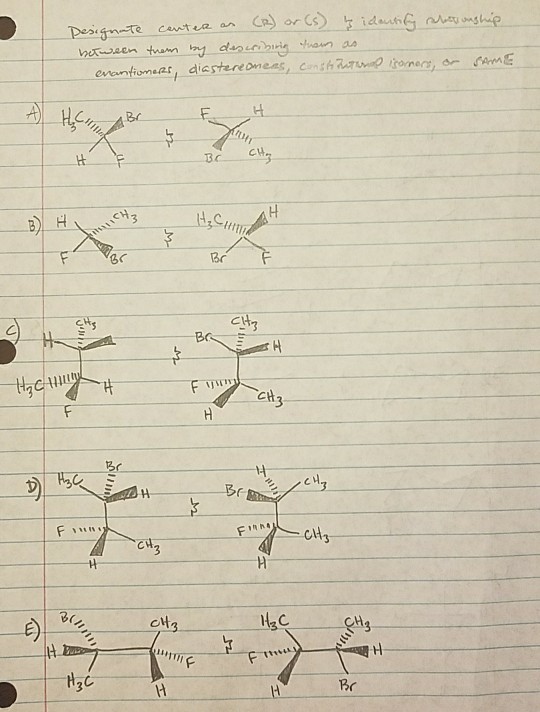 Designate center as (R) or (S) & identify relationship
between them by describing them as
enantiomers, diastereomers, constitutional isomers, or SAME
A) H3C Br & F H
H F Br CH3
B) H CH3 & H3C H
F Br Br F
C) CH3 & CH3
H Br H
H3C H F CH3
F H
D) Br & H
H3C H Br CH3
F CH3 F CH3
H H
E) Br CH3 & H3C CH3
H F F H
H3C H H Br